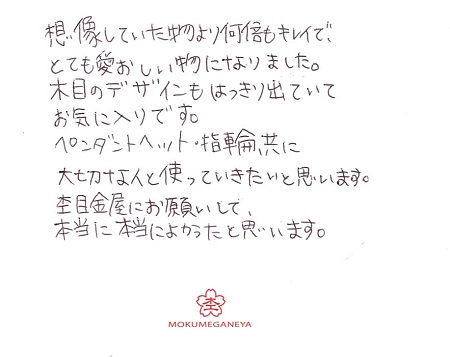 想像していた物より何倍もキレイで、
とても愛おしい物になりました。
木目のデザインもはっきり出ていて
お気に入りです。
ペンダントヘット・指輪共に
大切な人と使っていきたいと思います。
杢目金屋にお願いして、
本当に本当によかったと思います。
杢
MOKUMEGANEYA